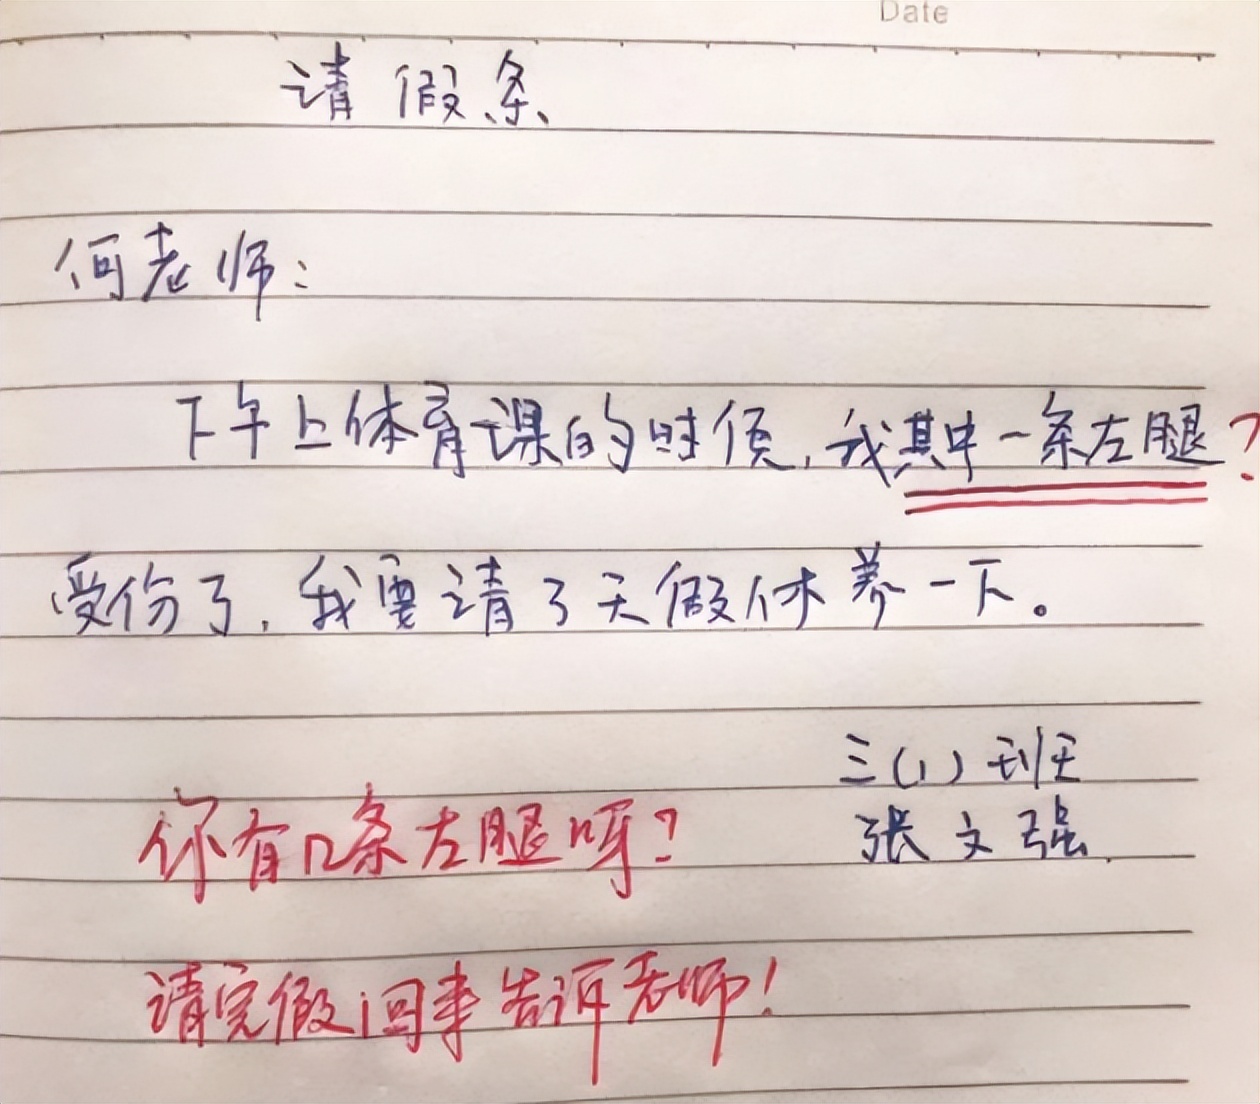 Date
请假条
何老师:
下午上体育课的时候,我其中一条左腿?
受伤了,我要请3天假休养一下。
三(1)班
张文强
你有几条左腿呀?
请完假回来告诉老师!